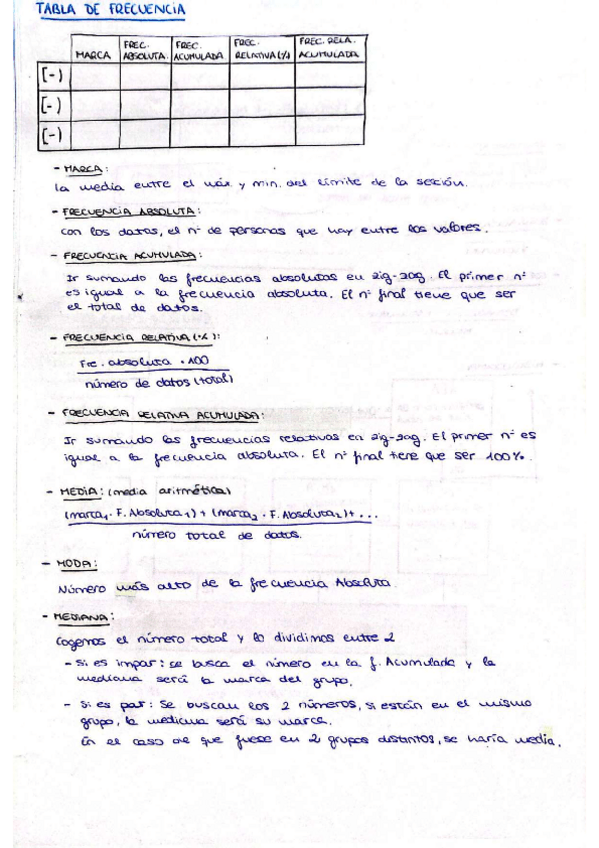 TABLA DE FRECUENCIA
MARCA FREC. ABSOLUTA. FREC. ACUMULADA FREC. RELATIVA (%) FREC. RELA. ACUMULADA
[-)
[-)
[-)
- MARCA:
la media entre el máx y min. del límite de la sección.
- FRECUENCIA ABSOLUTA:
con los datos, el nº de personas que hay entre los valores.
- FRECUENCIA ACUMULADA:
Ir sumando las frecuencias absolutas en zig-zag. El primer nº
es igual a la frecuencia absoluta. El nº final tiene que ser
el total de datos.
- FRECUENCIA RELATIVA (%):
Frec. absoluta · 100
número de datos (total)
- FRECUENCIA RELATIVA ACUMULADA:
Ir sumando las frecuencias relativas en zig-zag. El primer nº es
igual a la frecuencia absoluta. El nº final tiene que ser 100%.
- MEDIA: (media aritmética)
(marca1 · F. Absoluta1) + (marca2 · F. Absoluta2) + ...
número total de datos.
- MODA:
Número más alto de la frecuencia Absoluta.
- MEDIANA:
Cogemos el número total y lo dividimos entre 2
- Si es impar: se busca el número en la f. Acumulada y la
mediana será la marca del grupo.
- Si es par: Se buscan los 2 números, si están en el mismo
grupo, la mediana será su marca.
En el caso de que fuese en 2 grupos distintos, se haría media.